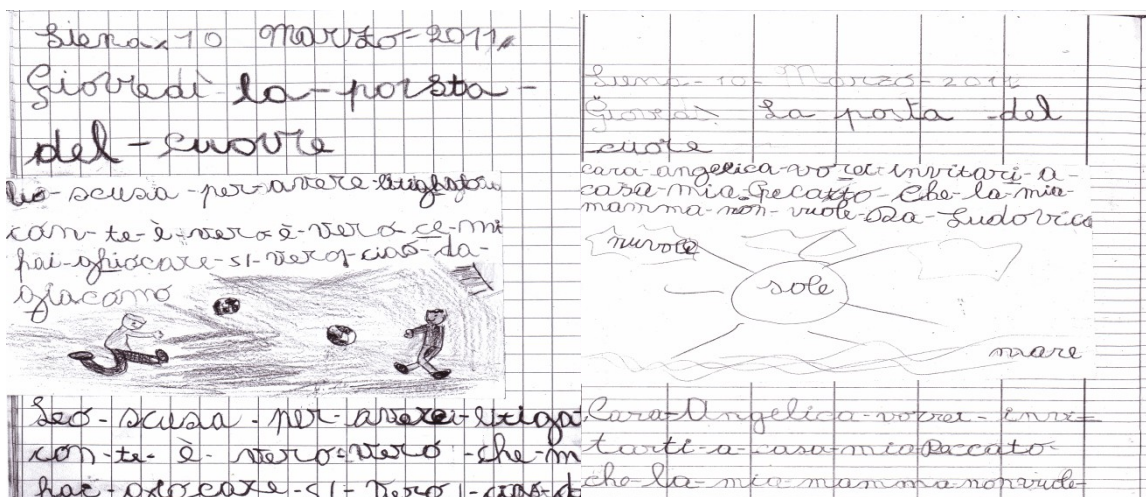 Siena 10 Marzo-2011
Giovedì la-porsta-
del-cuovre
leo-scusa-per-avere-
con-te-è-vero-è-vero-ce-mi
hai-ghiocare-si-vero-ciao-da-
giacomo
Leo-scusa-per-avere-litigat
con-te-è-vero-vero-che-m
hai-giocare-si-vero-ciao-d
Siena-10-Marzo-2011
Giovedì La posta-del
cuore
cara-angelica-vorei-invitari-a-
casa-mia-Pecatto-che-la-mia-
mamma-non-vuole-Da-Ludovica
nuvole
sole
mare
Cara-Angelica-vorrei-invi=
tarti-a-casa-mia Peccato-
che-la-mia-mamma